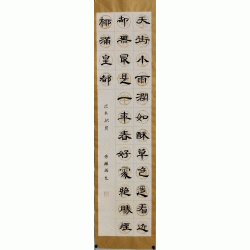 天街小雨潤如酥草色遙看近
却無最是一年春好處絕勝煙
柳滿皇都